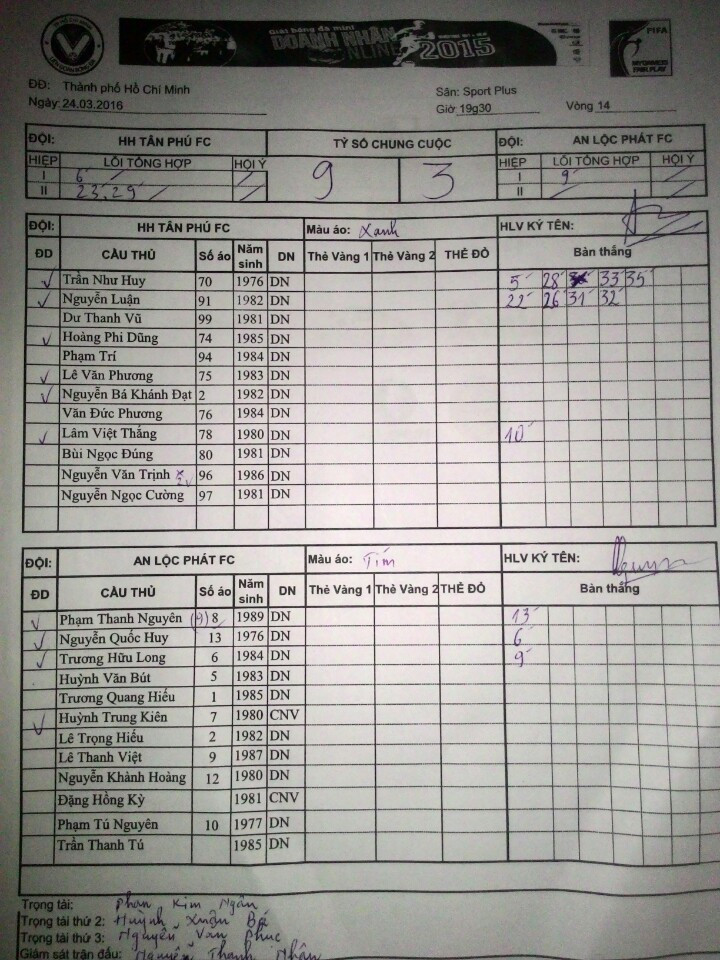 Giải bóng đá mini
DOANH NHÂN
ONLINE 2015
FIFA
MY GAME IS
FAIR PLAY
ĐĐ: Thành phố Hồ Chí Minh
Sân: Sport Plus
Ngày 24.03.2016
Giờ 19g30 Vòng 14
ĐỘI: HH TÂN PHÚ FC TỶ SỐ CHUNG CUỘC ĐỘI: AN LỘC PHÁT FC
HIỆP LỖI TỔNG HỢP HỘI Ý 9 3 HIỆP LỖI TỔNG HỢP HỘI Ý
I 6' I 9'
II 23', 29' II
ĐỘI: HH TÂN PHÚ FC Màu áo: Xanh HLV KÝ TÊN:
ĐD CẦU THỦ Số áo Năm sinh DN Thẻ Vàng 1 Thẻ Vàng 2 THẺ ĐỎ Bàn thắng
✓ Trần Như Huy 70 1976 DN 5' 28' 33' 35'
✓ Nguyễn Luận 91 1982 DN 22' 26' 31' 32'
Dư Thanh Vũ 99 1981 DN
✓ Hoàng Phi Dũng 74 1985 DN
Phạm Trí 94 1984 DN
✓ Lê Văn Phương 75 1983 DN
✓ Nguyễn Bá Khánh Đạt 2 1982 DN
Văn Đức Phương 76 1984 DN
✓ Lâm Việt Thắng 78 1980 DN 10'
Bùi Ngọc Đúng 80 1981 DN
Nguyễn Văn Trịnh 96 1986 DN
Nguyễn Ngọc Cường 97 1981 DN
ĐỘI: AN LỘC PHÁT FC Màu áo: Tím HLV KÝ TÊN:
ĐD CẦU THỦ Số áo Năm sinh DN Thẻ Vàng 1 Thẻ Vàng 2 THẺ ĐỎ Bàn thắng
✓ Phạm Thanh Nguyên 8 1989 DN 13'
✓ Nguyễn Quốc Huy 13 1976 DN 6'
✓ Trương Hữu Long 6 1984 DN 9'
Huỳnh Văn Bút 5 1983 DN
Trương Quang Hiếu 1 1985 DN
✓ Huỳnh Trung Kiên 7 1980 CNV
Lê Trọng Hiếu 2 1982 DN
Lê Thanh Việt 9 1987 DN
Nguyễn Khành Hoàng 12 1980 DN
Đặng Hồng Kỳ 1981 CNV
Phạm Tú Nguyên 10 1977 DN
Trần Thanh Tú 1985 DN
Trọng tài: Phan Kim Ngân
Trọng tài thứ 2: Huỳnh Xuân Bá
Trọng tài thứ 3: Nguyễn Văn Phúc
Giám sát trận đấu: Nguyễn Thanh Nhân